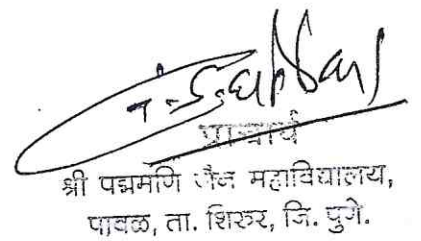 प्राचार्य
श्री पद्ममणि जैन महाविद्यालय,
पाबळ, ता. शिरुर, जि. पुणे.